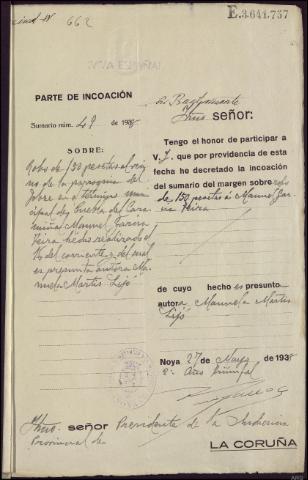 662
E.3.641.737
PARTE DE INCOACIÓN
Sumario núm. 49 de 1938
SOBRE:
Robo de 150 pesetas al veci
no de la parroquia del
Jobre en el término mu
nicipal de Puebla del Cara
miñal Manuel García
Neira hecho realizado el
16 del corriente y del cual
es presunta autora Ma
nuela Martis Lijó
Iltmo. señor:
Tengo el honor de participar a
V. I. que por providencia de esta
fecha he decretado la incoación
del sumario del margen sobre robo
de 150 pesetas a Manuel Gar
cía Neira
de cuyo hecho es presunta
autora Manuela Martis
Lijó
Noya 27 de Mayo de 1938
2º Año Triunfal
Iltmo. señor Presidente de la Audiencia
Provincial de
LA CORUÑA